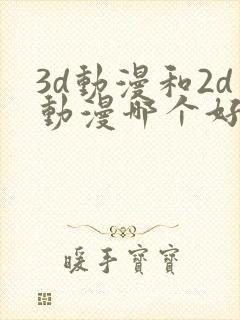 3d動漫和2d
動漫哪个好
暖手寶寶